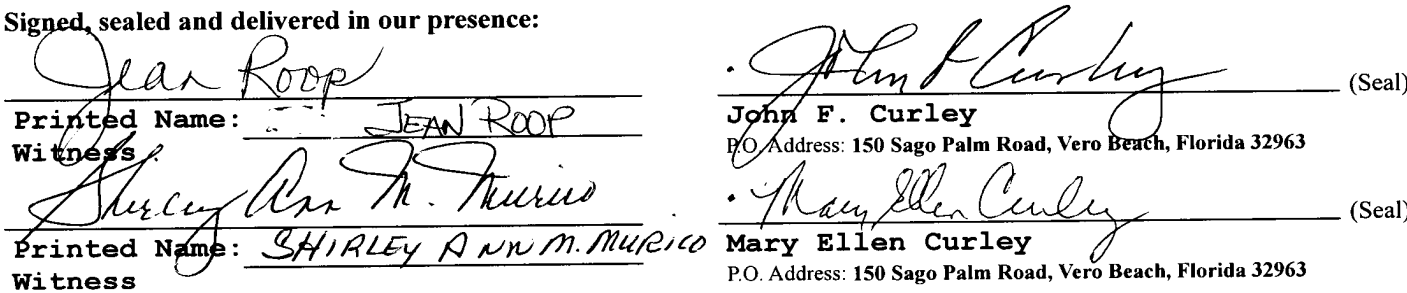 Signed, sealed and delivered in our presence:
Jean Roop
Printed Name: JEAN ROOP
Witness
Shirley Ann M. Murico
Printed Name: SHIRLEY ANN M. MURICO
Witness
John F Curley (Seal)
John F. Curley
P.O. Address: 150 Sago Palm Road, Vero Beach, Florida 32963
Mary Ellen Curley (Seal)
Mary Ellen Curley
P.O. Address: 150 Sago Palm Road, Vero Beach, Florida 32963